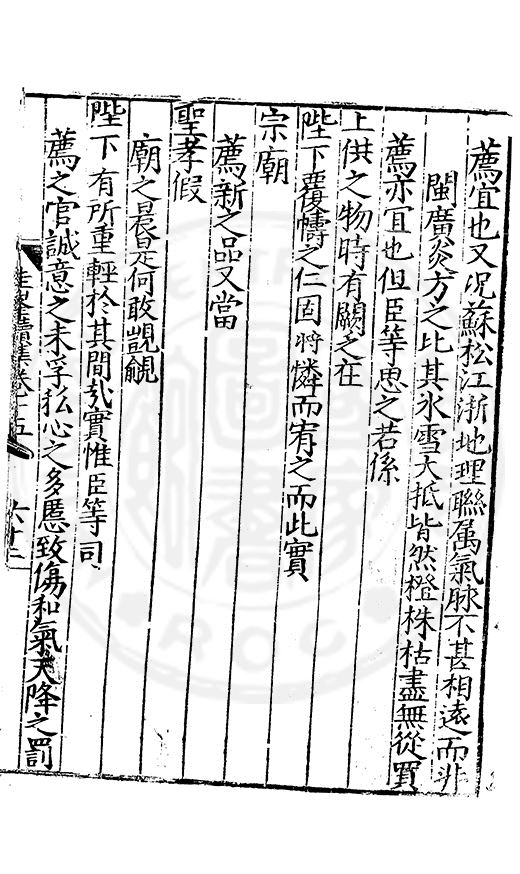 薦宜也又况蘇松江浙地理聯属氣脉不甚相遠而非
閩廣炎方之比其氷雪大抵皆然橙株枯盡無從買
薦亦宜也但臣等思之若係
上供之物時有闕之在
陛下覆幬之仁固将憐而宥之而此實
宗廟
薦新之品又當
聖孝假
廟之晨是何敢覬覦
陛下有所重輕於其間㢤實惟臣等司
薦之官誠意之未孚私心之多慝致傷和氣天降之罰
續集卷十五
六十二